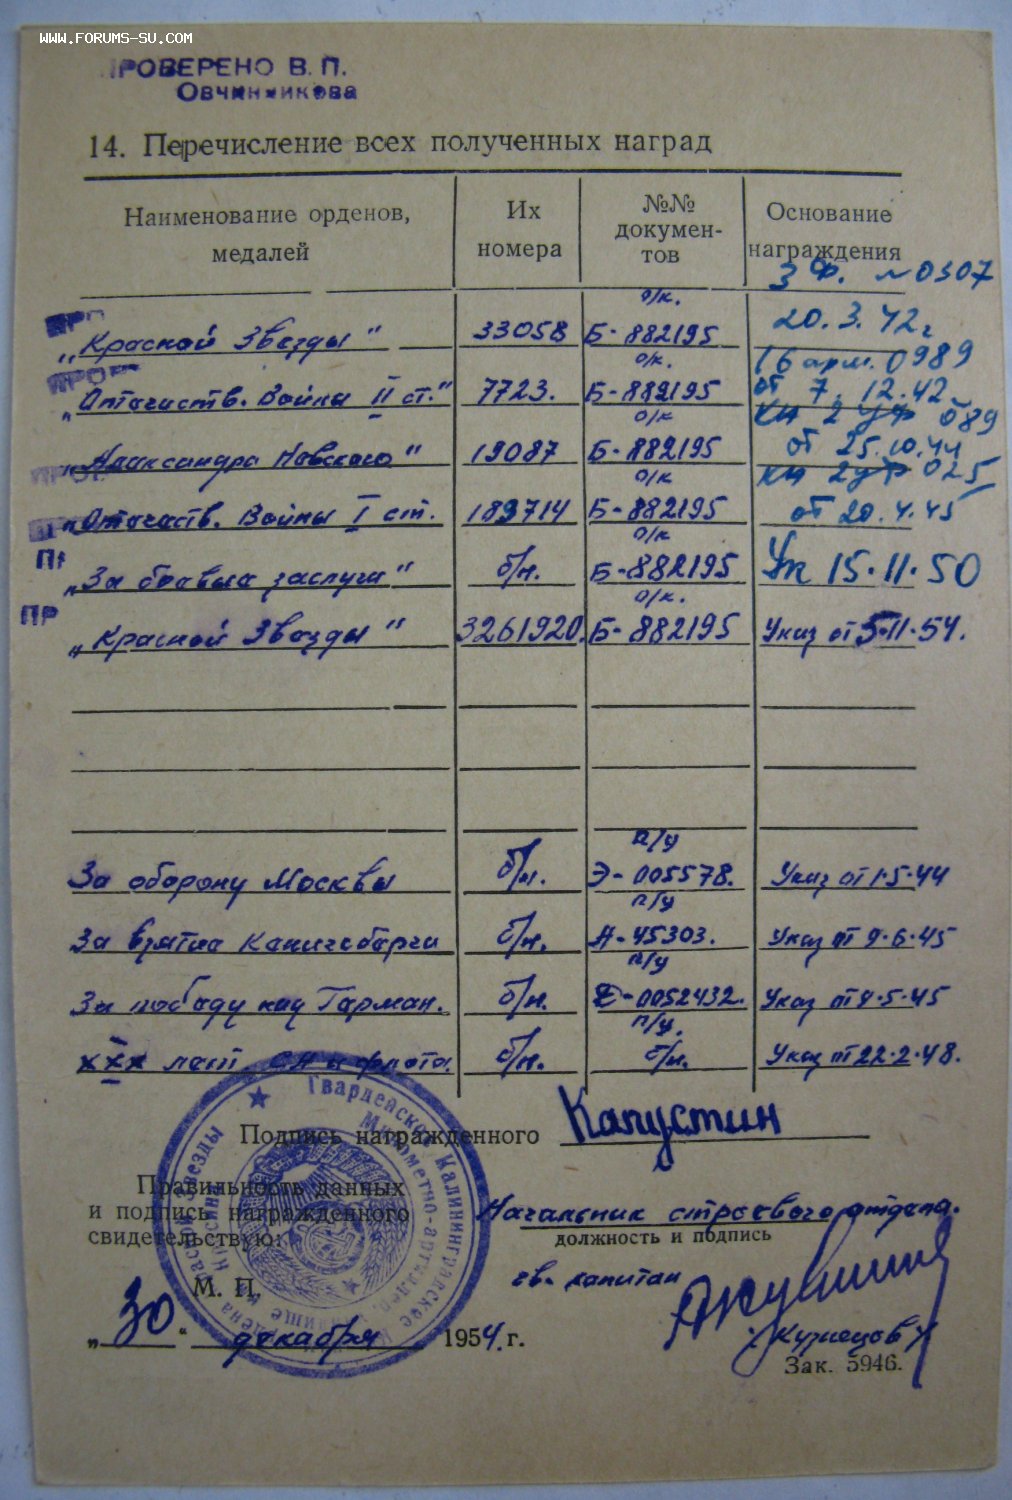 www.forums-su.com
ПРОВЕРЕНО В. П.
Овчинникова
14. Перечисление всех полученных наград
Наименование орденов, медалей
Их номера
№№ докумен-тов
Основание награждения
3 Ф. №0307
о/к.
„Красной Звезды" 33058 Б-882195 20.3.42г
о/к. 16 арм. 0989
„Отечеств. Войны II ст." 7723. Б-882195 от 7.12.42
о/к 089
„Александра Невского" 19087 Б-882195 от 25.10.44
о/к 025
„Отечеств. Войны I ст. 189714 Б-882195 от 20.4.45
о/к
„За боевые заслуги" б/н. Б-882195 Ук 15.11.50
о/к.
„Красной Звезды" 3261920. Б-882195 Указ от 5.11.54.
п/у
За оборону Москвы б/н. Э-005578. Указ от 1.5.44
п/у
За взятие Кенигсберга б/н. А-45303. Указ от 9.6.45
п/у
За победу над Герман. б/н. 0052432. Указ от 9.5.45
п/у.
ХХХ лет СА и флота. б/н. б/н. Указ от 22.2.48.
Подпись награжденного Капустин
Правильность данных
и подпись награжденного
свидетельствую:
Начальник строевого отдела.
должность и подпись
гв. капитан
М. П.
/Кузнецов/
„30" декабря 1954 г.
Зак. 5946.
Гвардейское Калининградское
Минометно-артиллер.
Красной Звезды